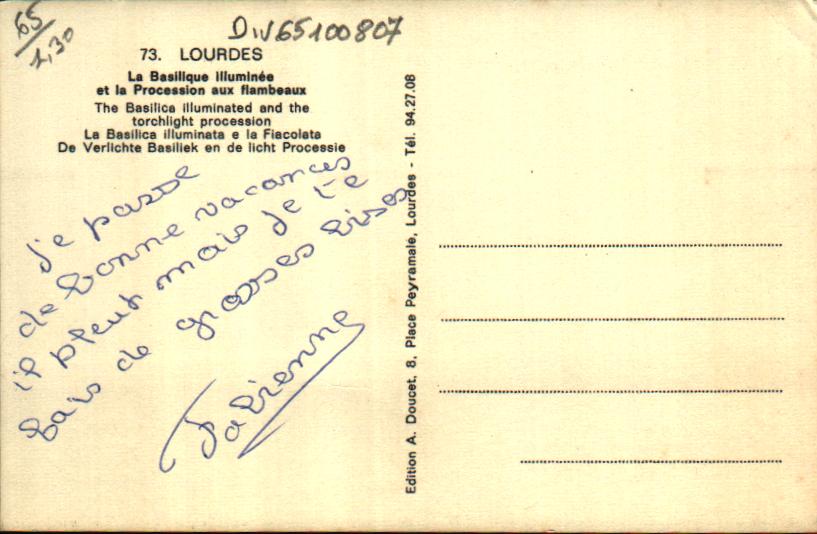 65
1,30
Div65100807
73. LOURDES
La Basilique illuminée
et la Procession aux flambeaux
The Basilica illuminated and the
torchlight procession
La Basilica illuminata e la Fiacolata
De Verlichte Basiliek en de licht Processie
je passe
de bonne vacances
il pleut mais je te
fais de grosses bises
Fabienne
Edition A. Doucet, 8, Place Peyramale, Lourdes - Tél. 94.27.08